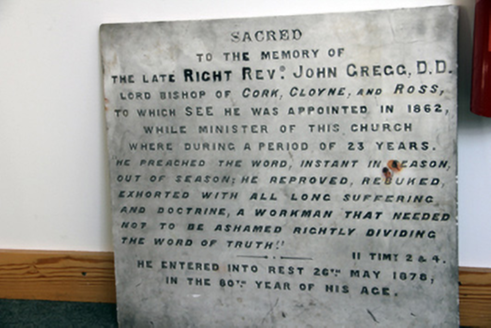 SACRED
TO THE MEMORY OF
THE LATE RIGHT REVD. JOHN GREGG, D.D.
LORD BISHOP OF CORK, CLOYNE, AND ROSS,
TO WHICH SEE HE WAS APPOINTED IN 1862,
WHILE MINISTER OF THIS CHURCH
WHERE DURING A PERIOD OF 23 YEARS.
HE PREACHED THE WORD, INSTANT IN SEASON,
OUT OF SEASON; HE REPROVED, REBUKED,
EXHORTED WITH ALL LONG SUFFERING
AND DOCTRINE, A WORKMAN THAT NEEDED
NOT TO BE ASHAMED RIGHTLY DIVIDING
THE WORD OF TRUTH."
II TIM: 2 & 4.
HE ENTERED INTO REST 26TH MAY 1878,
IN THE 80TH YEAR OF HIS AGE.